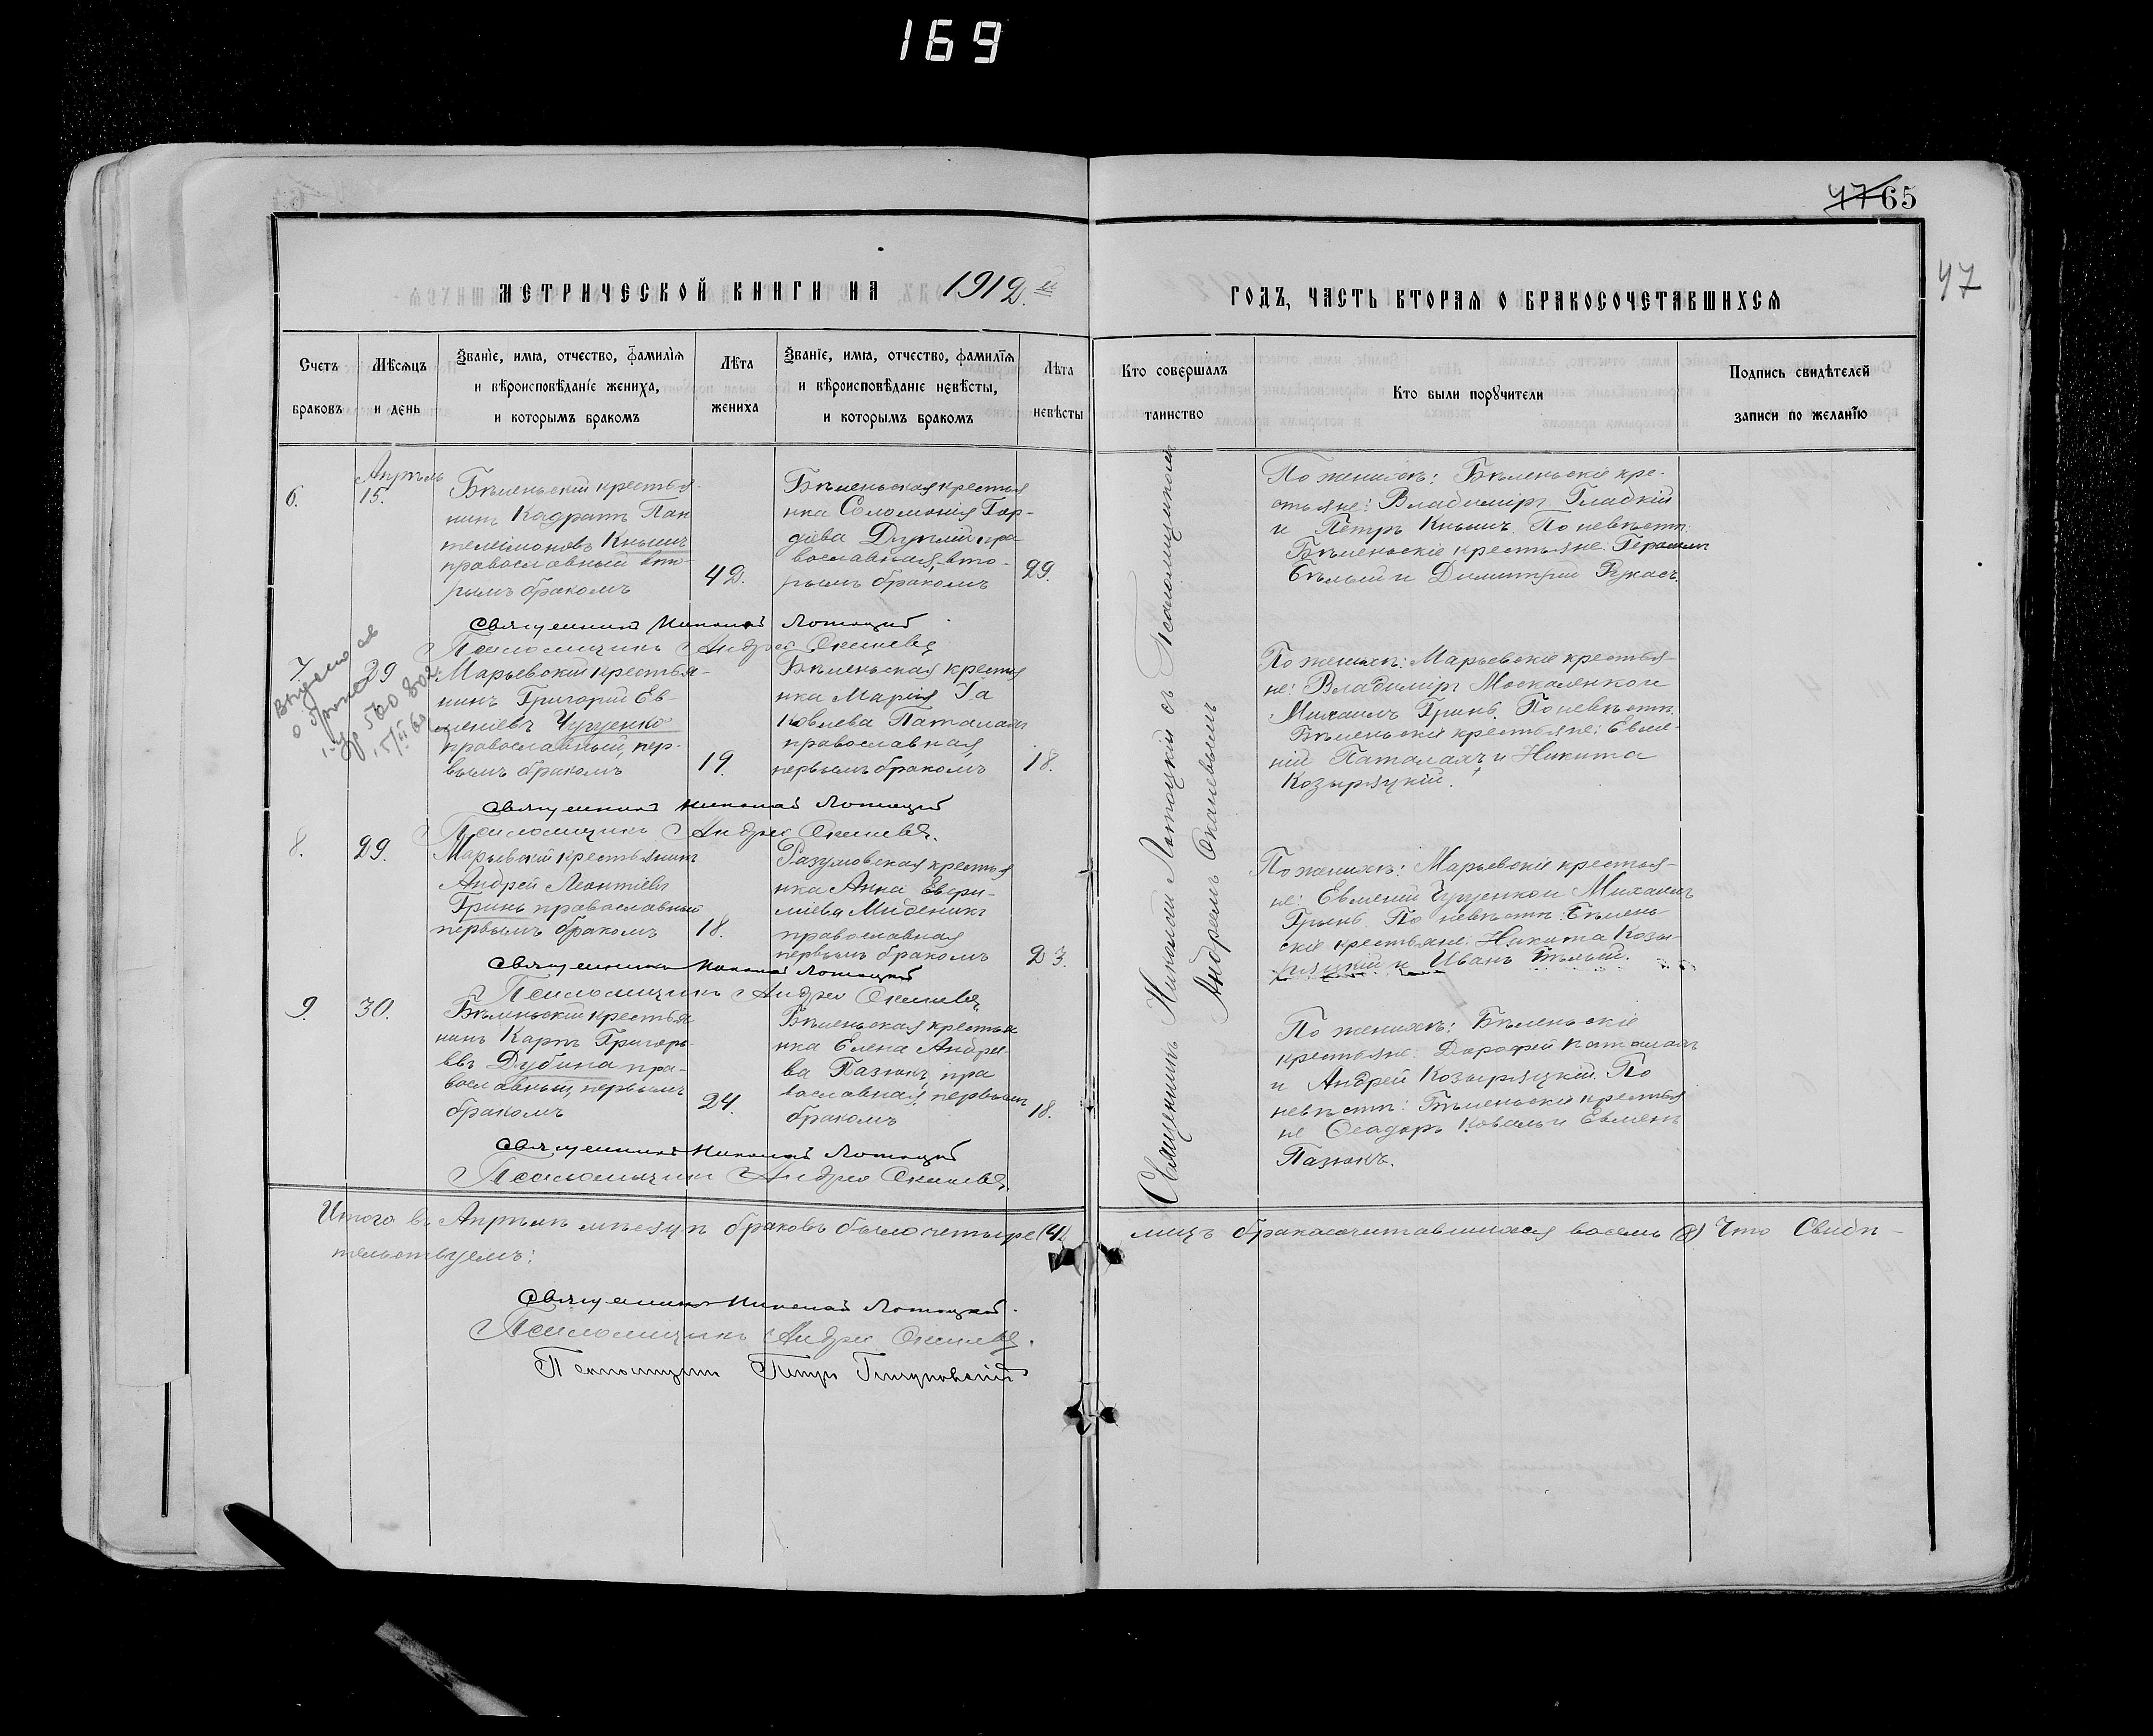 169
47 65
47
МЕТРИЧЕСКОЙ КНИГИ НА 1912й
ГОДЪ, ЧАСТЬ ВТОРАЯ О БРАКОСОЧЕТАВШИХСЯ
Счетъ
браковъ
Мѣсяцъ
и день
Званіе, имя, отчество, фамилія
и вѣроисповѣданіе жениха,
и которымъ бракомъ
Лѣта
жениха
Званіе, имя, отчество, фамилія
и вѣроисповѣданіе невѣсты,
и которымъ бракомъ
Лѣта
невѣсты
Кто совершалъ
таинство
Кто были поручители
Подпись свидѣтелей
записи по желанію
6.
Апрѣль
15.
Бѣленьскій крестья-
нинъ Кодратъ Пан
телеимоновъ Кнышъ
православный вто-
рымъ бракомъ
42.
Бѣленьская крестья
нка Соломонія Гор-
діева пра
вославная, вто-
рымъ бракомъ
29.
Священникъ Николай Лотоцкій съ Псаломщикомъ
Андреемъ
По женихѣ: Бѣленьскіе кре-
стьяне: Владиміръ Гладкій
и Петръ Кнышъ. По невѣстѣ:
Бѣленьскіе крестьяне: Герасимъ
Бѣлый и Димитрій
Священникъ Николай Лотоцкій
Псаломщикъ Андрей
7.
29
Марьевскій крестья-
нинъ Григорій Ев-
меніевъ Чугуенко
православный, пер-
вымъ бракомъ
19.
Бѣленьская крестья
нка Марія Іа
ковлева Паталахъ
православная
первымъ бракомъ
18.
По женихѣ: Марьевскіе крестья-
не: Владиміръ Москаленко и
Михаилъ Гринь. По невѣстѣ:
Бѣленьскіе крестьяне: Евме-
ній Паталахъ и Никита
Козыряцкій.
о браке
Священникъ Николай Лотоцкій
Псаломщикъ Андрей
8.
29.
Марьевскій крестьянинъ
Андрей Леонтіевъ
Гринь православный
первымъ бракомъ
18.
Разумовская крестья
нка Анна
православная
первымъ бракомъ
23.
По женихѣ: Марьевскіе крестья-
не: Евменій Чугуенко и Михаилъ
Гринь. По невѣстѣ: Бѣлень-
скіе крестьяне: Никита Козы-
ряцкій и Иванъ Бѣлый.
Священникъ Николай Лотоцкій
Псаломщикъ Андрей
9.
30.
Бѣленьскій крестья
нинъ Карпъ Григорь-
евъ Дубина пра-
вославный, первымъ
бракомъ
24.
Бѣленьская крестья
нка Елена Андрее-
ва Пазюкъ, пра
вославная, первымъ
бракомъ
18.
По женихѣ: Бѣленьскіе
крестьяне: Дорофей Паталахъ
и Андрей Козыряцкій. По
невѣстѣ: Бѣленьскіе крестья
не Коваль и Евмень
Пазюкъ.
Священникъ Николай Лотоцкій
Псаломщикъ Андрей
Итого въ Апрѣлѣ мѣсяцѣ браковъ было четыре (4) лицъ бракосочитавшихся восемь (8) Что Свидѣ-
тельствуемъ:
Священникъ Николай Лотоцкій.
Псаломщикъ Андрей
Псаломщикъ Петръ